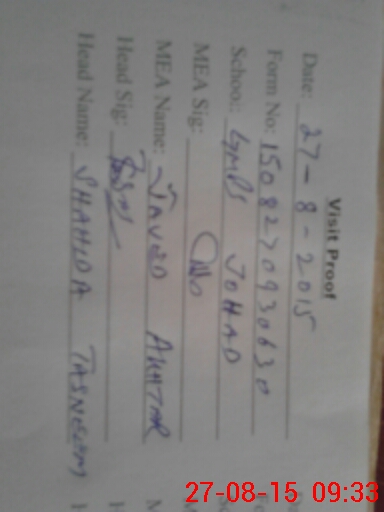 Visit Proof
Date: 27-8-2015
Form No: 1508270930630
School: GMPS JOHAD
MEA Sig:
MEA Name: JAVED AKHTAR
Head Sig:
Head Name: SHAHIDA TASNEEM
27-08-15 09:33